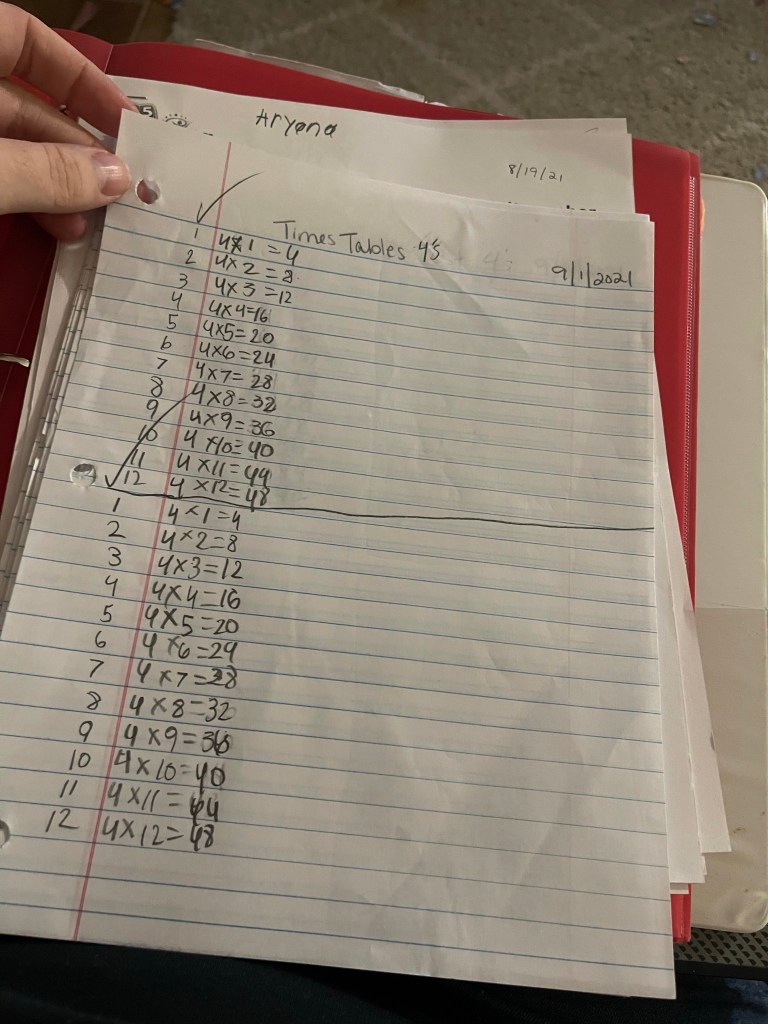 5
Aryona
8/19/21
Times Tables 4's
9/1/2021
1 4x1=4
2 4x2=8
3 4x3=12
4 4x4=16
5 4x5=20
6 4x6=24
7 4x7=28
8 4x8=32
9 4x9=36
10 4x10=40
11 4x11=44
12 4x12=48
1 4x1=4
2 4x2=8
3 4x3=12
4 4x4=16
5 4x5=20
6 4x6=24
7 4x7=28
8 4x8=32
9 4x9=36
10 4x10=40
11 4x11=44
12 4x12=48